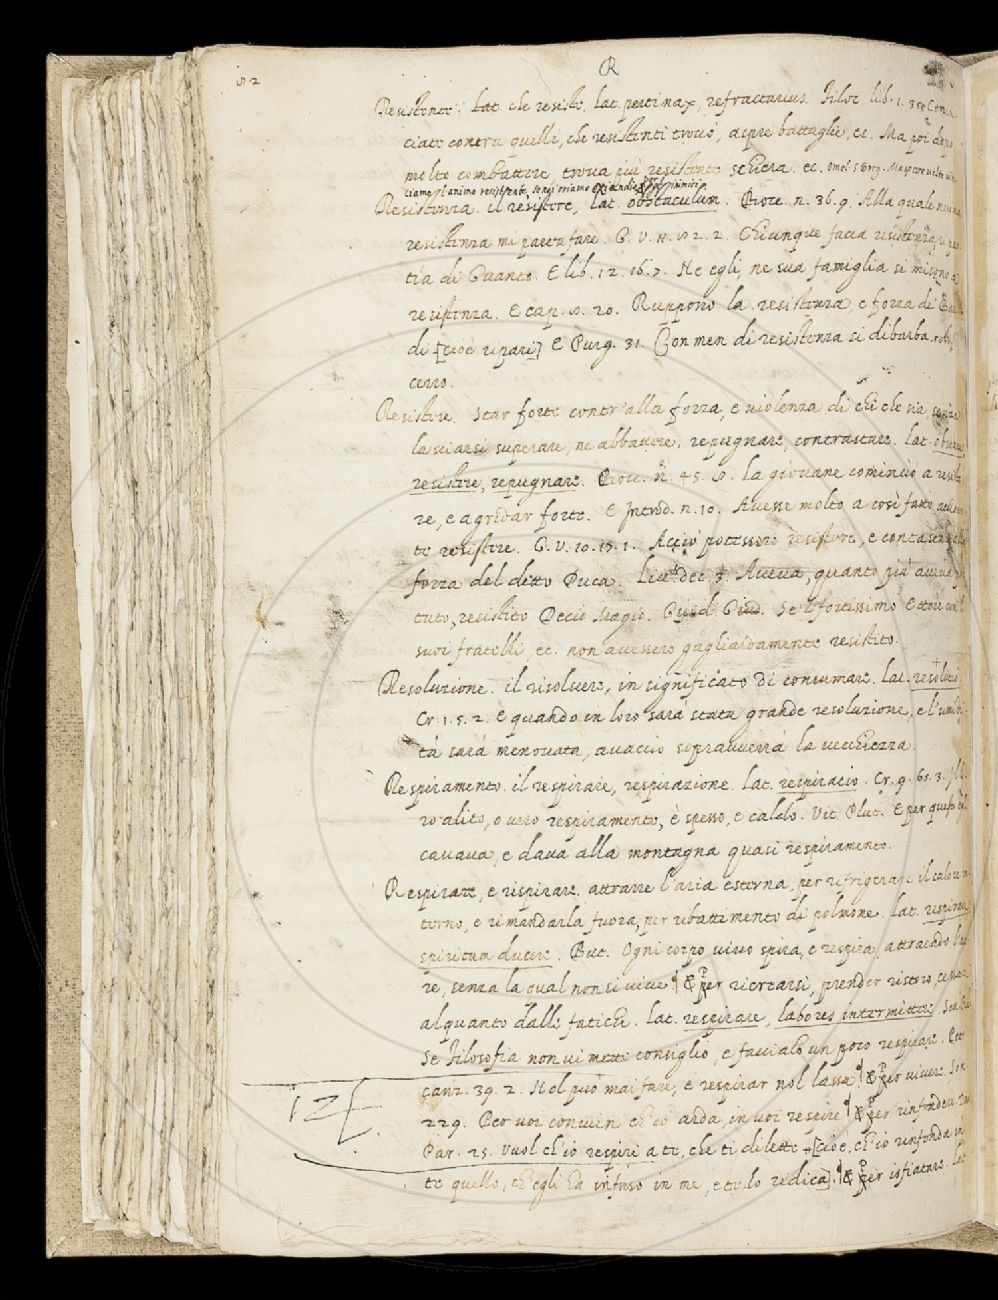 R
Resistente. Lat. che resiste, lat. pertinax, refractarius. Filoc. lib. 1. 35
ciate contra quelli, che resistenti trovò, aspre battaglie, ec. Ma poi dopo
molto combattere, trova più resistente schiera. ec. Omel. S Greg.
ciamo l'animo resistente
Resistenza. il resistere, lat. obstaculum. Bocc. n. 36. 9. Alla quale niuna
resistenza mi parea fare. G. V. 11. 2. 2. Chiunque facea resistenza,
tìa di Guanto. E lib. 12. 16. 7. Ne egli, ne sua famiglia si misono a
resistenza. E cap. 20. Ruppono la resistenza, e forza de
di [cioè ripari] E Purg. 31. Con men di resistenza si dibarba. robusto
cerro.
Resistere. Star forte contr'alla forza, e violenza di chi che sia, senza
lasciarsi superare, ne abbattere, repugnare, contrastare. Lat. obstare
resistere, repugnare. Bocc. n. 45. La giovane cominciò a resiste
re, e a gridar forte. E Introd. n. 10. Avesse molto a così fatto
te resistere. G. V. 10. 15. 1. Acciò potessero resistere, e contastare alla
forza del detto Duca. Liv. dec. 3. Aveva, quanto già aveva
tuto, resistito Decio Magio. Guid. Giud. Se 'l fortissimo Ettore
suoi fratelli, ec. non avessero gagliardamente resistito.
Resoluzione. il risolvere, in significato di consumare. lat. resolutio
Cr. 1. 5. 2. E quando in loro sarà stata grande resoluzione, e l'umidi
tà sarà menovata, avaccio sopravverrà la vecchiezza.
Respiramento. il respirare, respirazione. lat. respiratio. Cr. 9. 65. 3.
ro alito, overo respiramento, è spesso, e caldo. Vit. Plut. E per questo egli
cavava, e dava alla montagna quasi respiramento.
Respirare, e rispirare. attrarre l'aria esterna, per rifrigerare il calore in
terno, e rimandarla fuora, per ribattimento di polmone. lat. respirare
spiritum ducere. But. Ogni corpo vivo spira, e respira, attraendo l'ae
re, senza la qual non si vive ¶ E per ricrearsi, prender ristoro, cessare
alquanto dalle fatiche. lat. respirare, labores intermittere. Sen.
Se Filosofia non vi mette consiglio, e faccialo un poco respirare. Petr.
canz. 39. 2. Nol può mai fare, e respirar nol lassa ¶ E per vivere. Son.
229. Per voi convien ch'io arda, in voi respire ¶ E per rinfondere.
Par. 25. Vuol ch'io respiri a te, che ti dilette [cioè, ch'io rinfonda in
te quello, ch'egli ha infuso in me, e te lo redica]. ¶ E per isfiatare. Lat
12